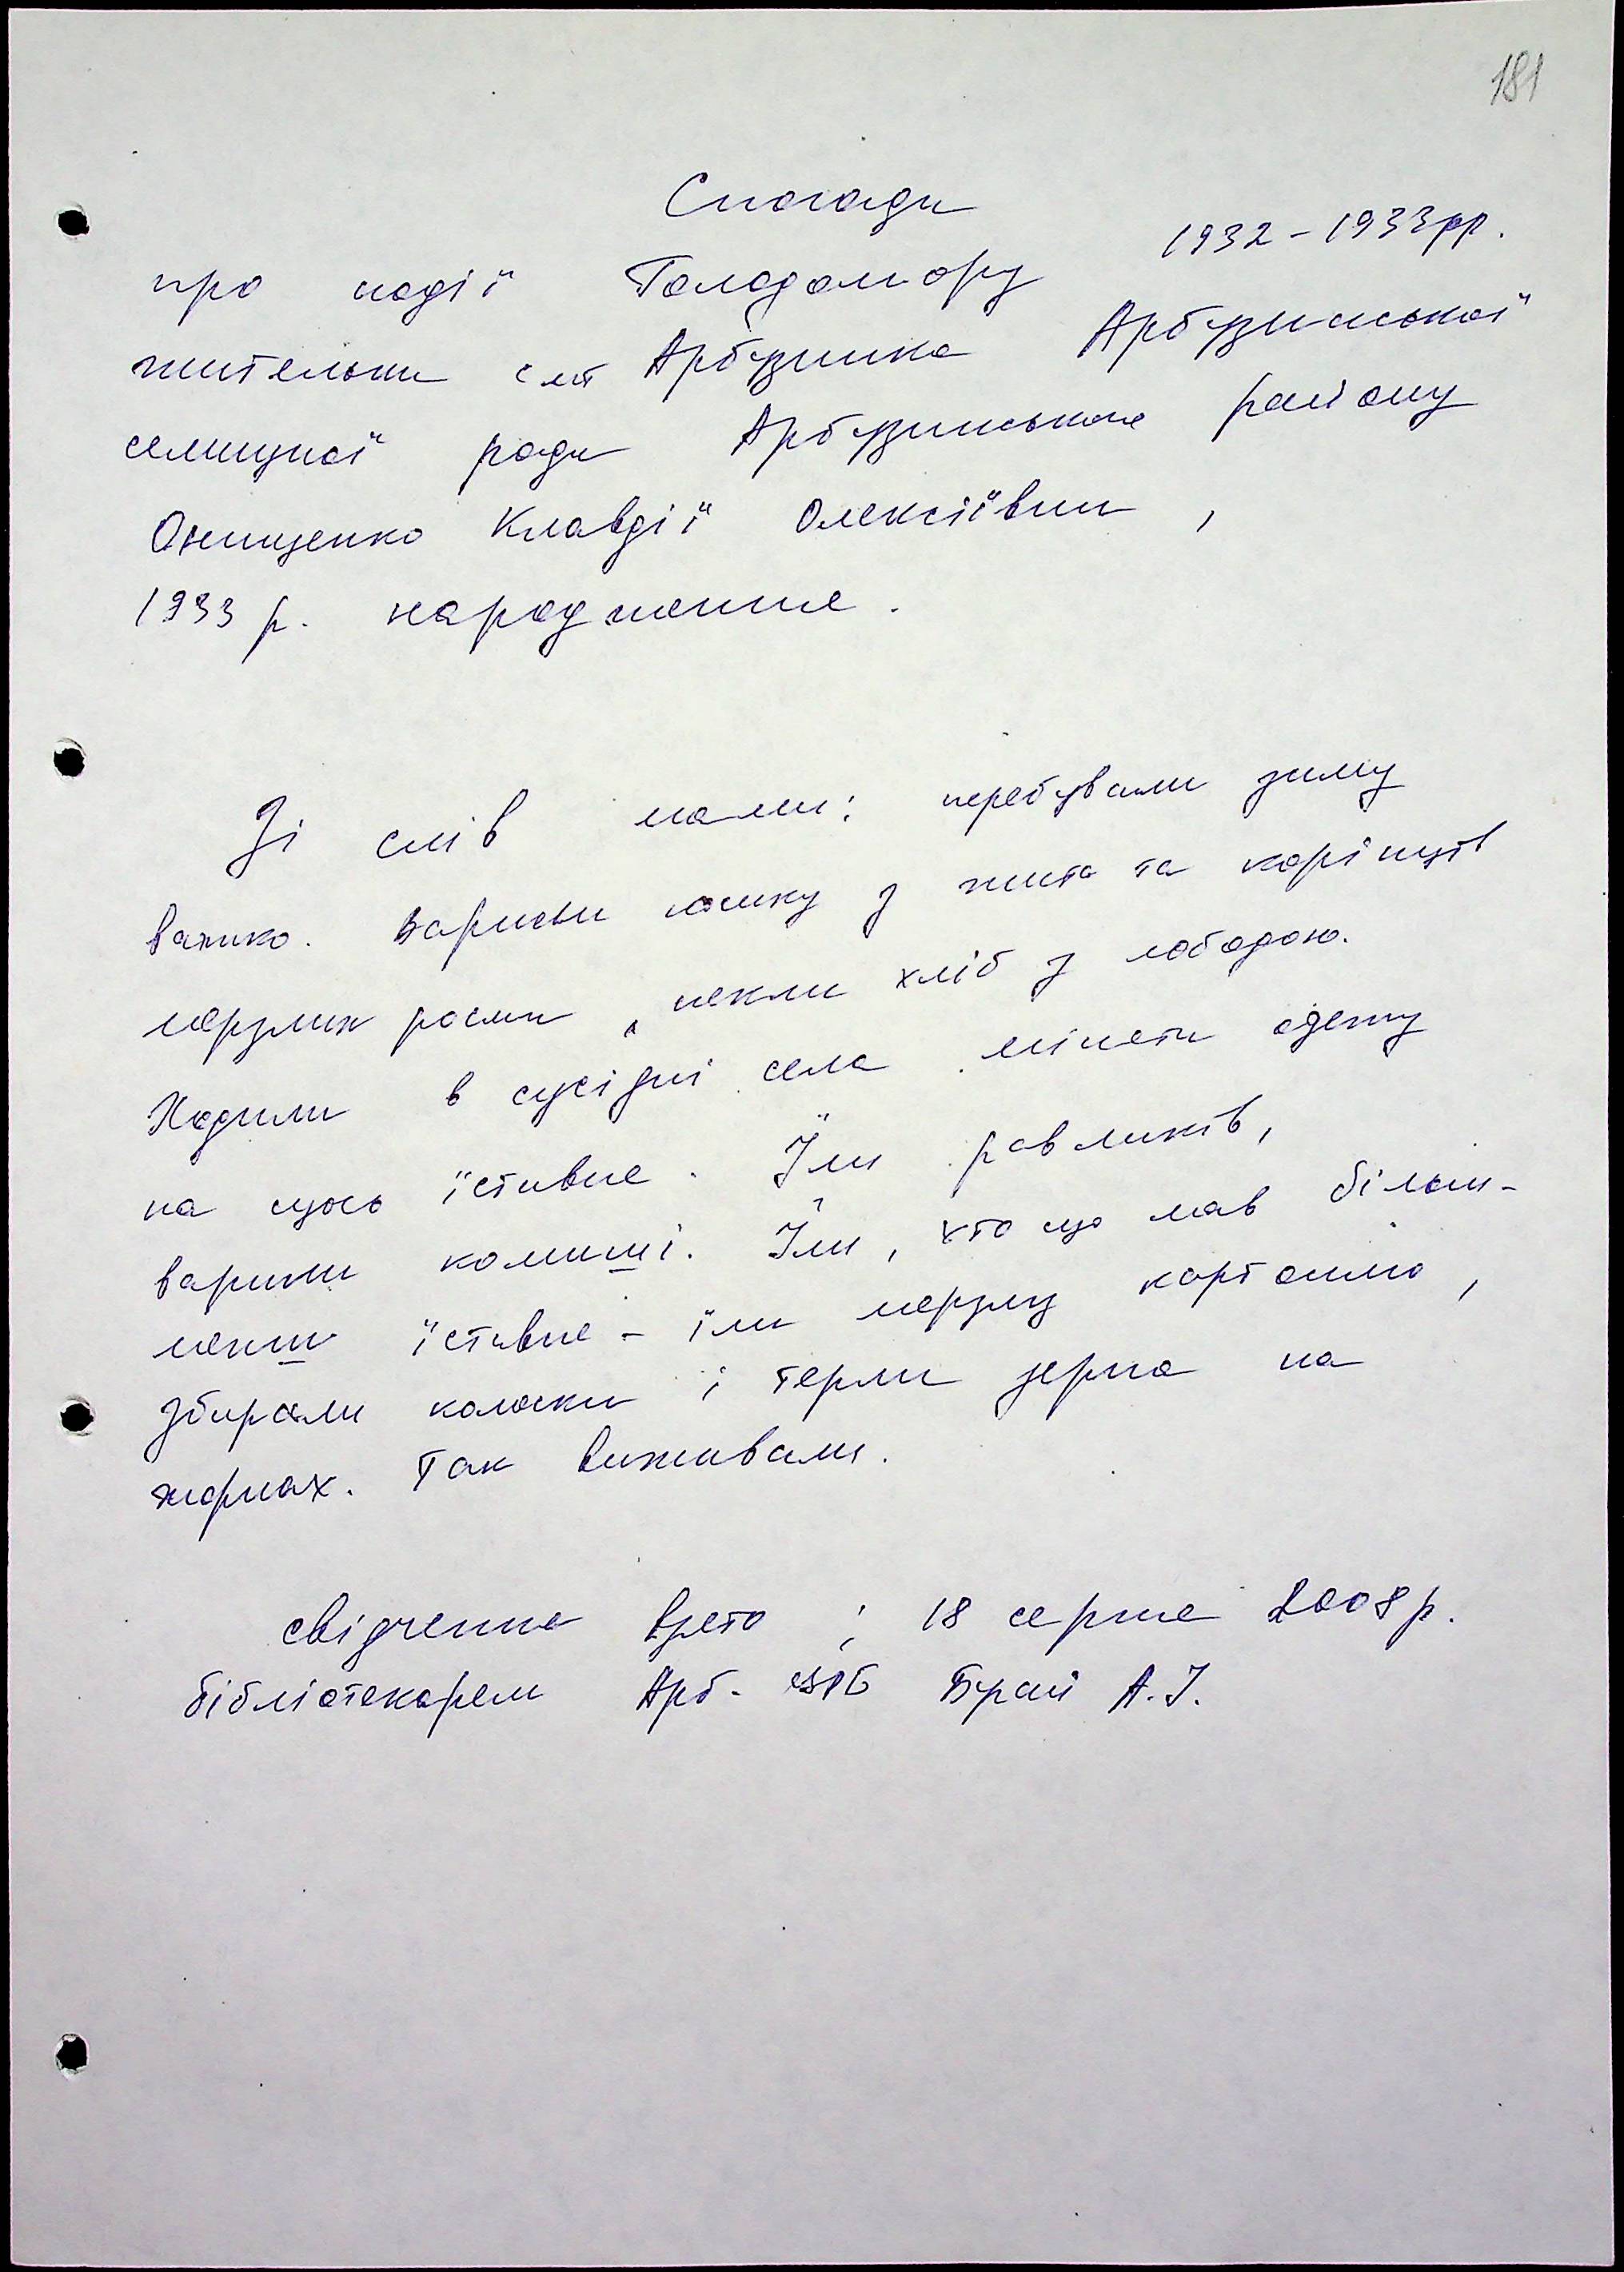 181
Спогади
про події Голодомору 1932-1933рр.
жительки смт Арбузинка Арбузинської
селищної ради Арбузинського району
Онищенко Клавдії Олексіївни,
1933 р. народження.
Зі слів мами: перебували зиму
важко. Варили юшку з жита та корінців
мерзлих рослин, пекли хліб з лободою.
Ходили в сусідні села міняти одежу
на щось їстивне. Їли равликів,
варили комиші. Їли, хто що мав більш-
менш їстивне - їли мерзлу картоплю,
збирали колоски і терли зерно на
жорнах. Так виживали.
свідчення взято: 18 серпня 2008р.
бібліотекарем Арб. ЦРБ Бугай А.І.